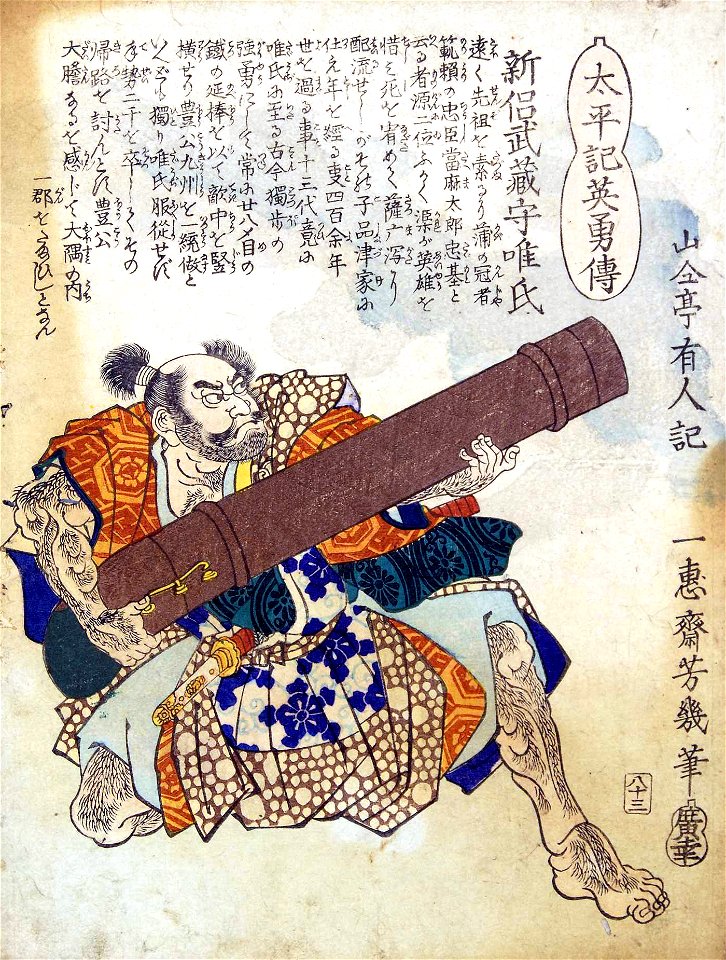 太平記英勇傳
山仝亭有人記
一惠齋芳幾筆
八十三
廣幸
新侶武藏守唯氏
遠く先祖を素るに蒲の冠者
範頼の忠臣當麻太郎忠基と
云る者源二位ふかく渠が英雄を
惜ミ死を宥めて薩广潟に
配流せしがその子品津家に
仕え年を經る叓四百余年
世を過る事十三代竟に
唯氏に至る古今獨歩の
強勇にして常に廿八〆目の
鐵の延棒を以て敵中を竪
横せり豊公九州を一統做と
いへども獨り唯氏服従せず
手勢二千を卒してその
帰路を討んとす豊公
大膽なるを感じて大隅の内
一郡をたまひしとなん